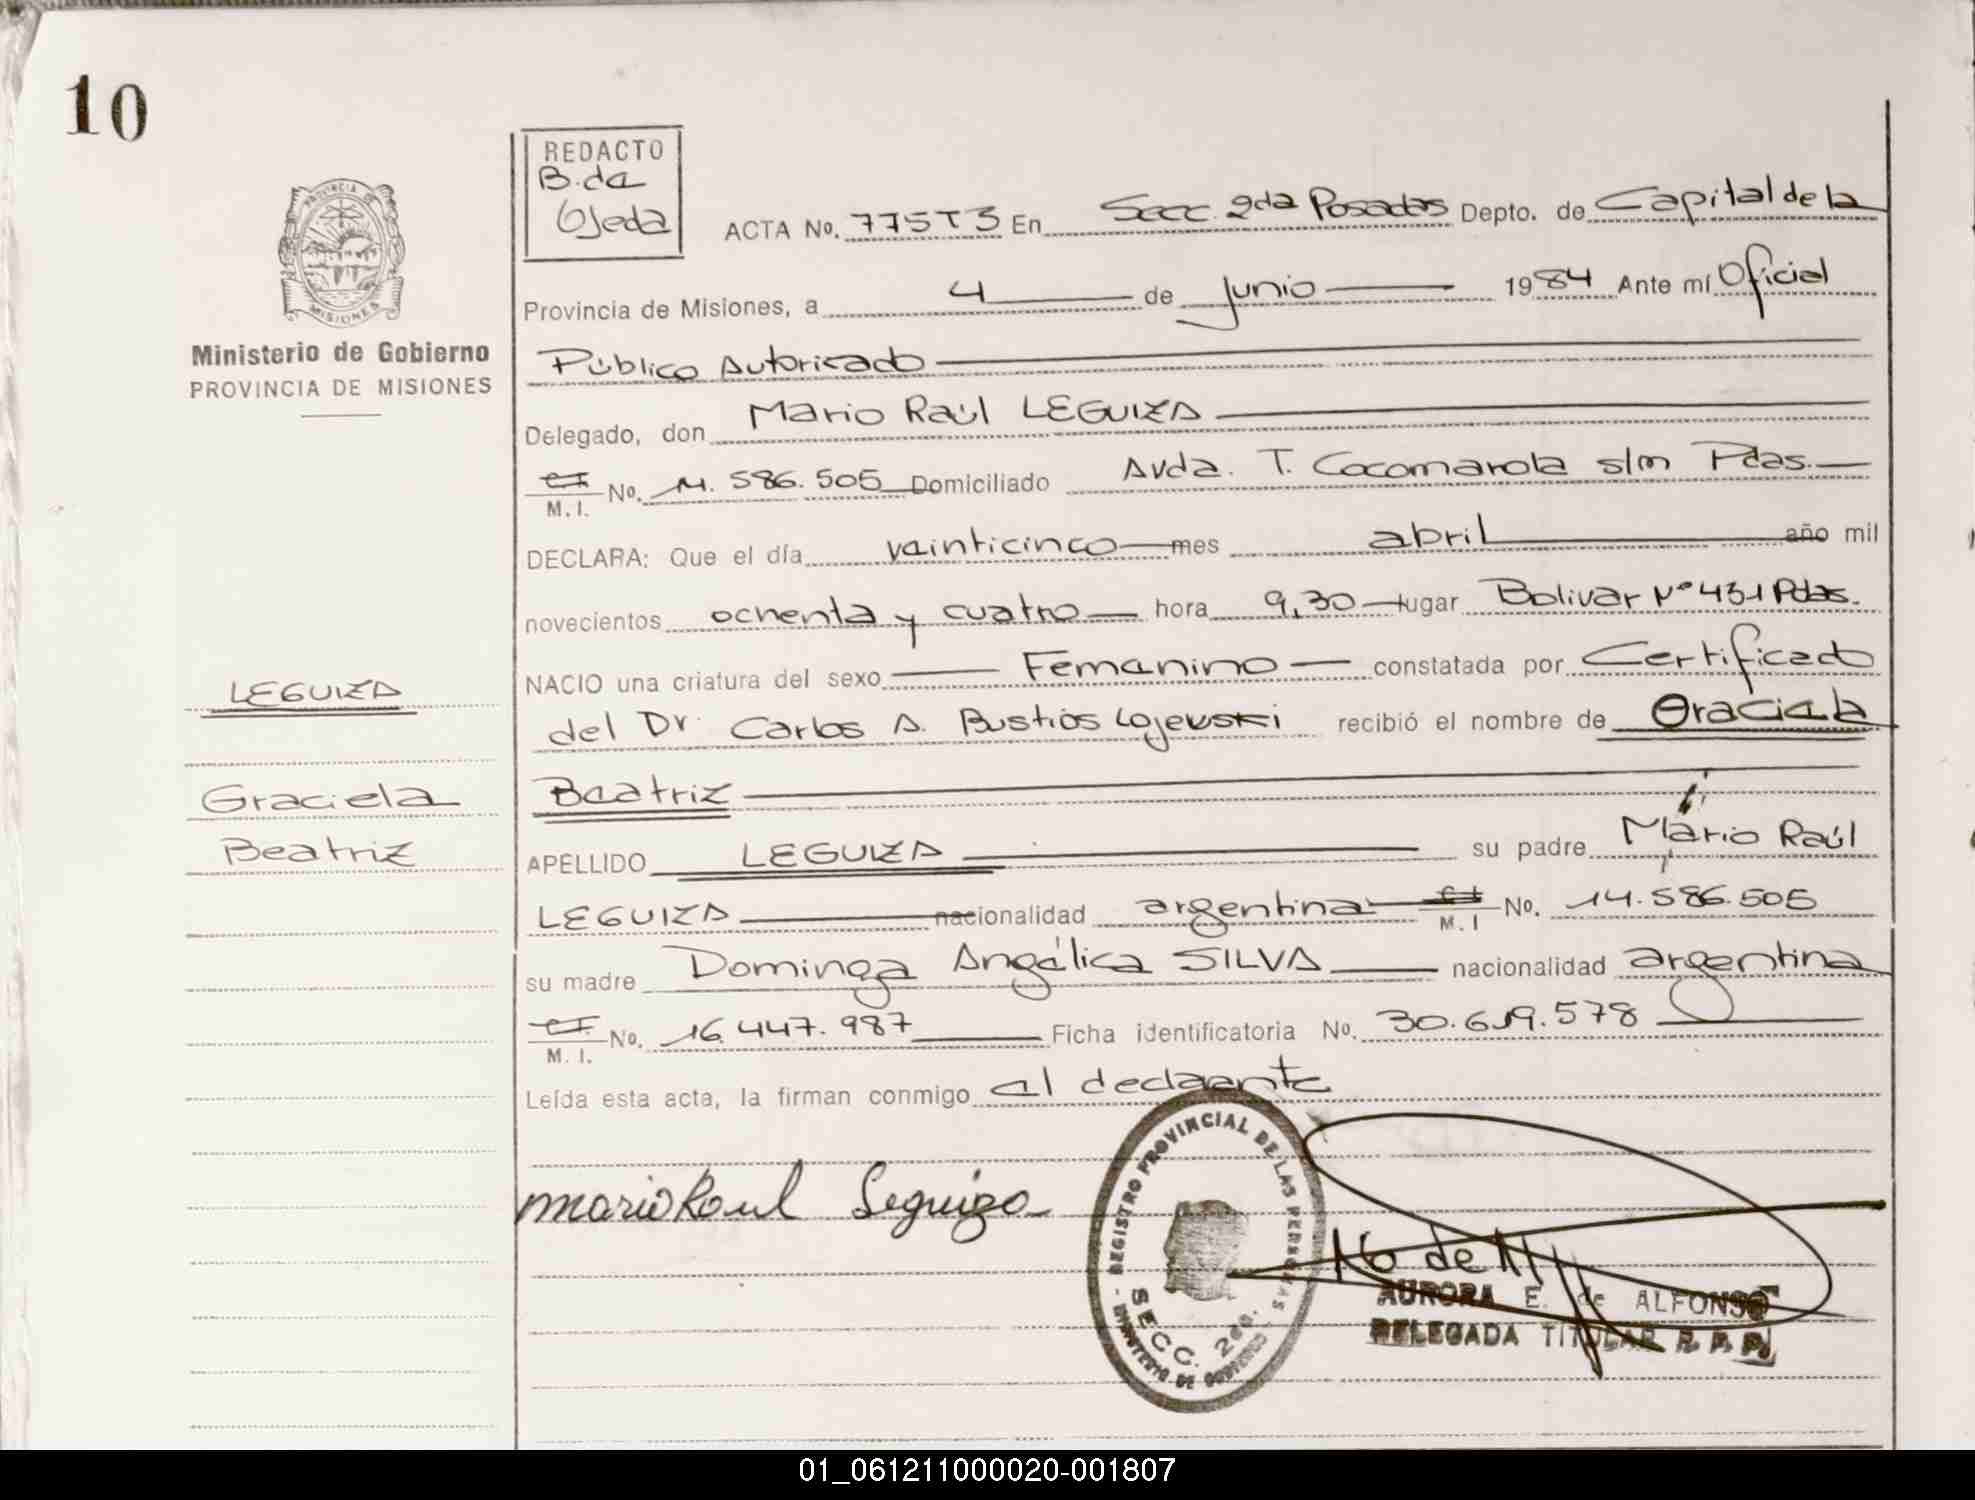 10
PROVINCIA DE
MISIONES
Ministerio de Gobierno
PROVINCIA DE MISIONES
LEGUIZA
Graciela
Beatriz
REDACTO
B. de
Ojeda
ACTA No. 775T3 En Secc. 2da Posadas Depto. de Capital de la
Provincia de Misiones, a 4 de junio 1984 Ante mí Oficial
Público Autorizado
Delegado, don Mario Raúl LEGUIZA
C.I.
M.I. No. 14.586.505 Domiciliado Avda. T. Cocomarola s/n Pdas.
DECLARA: Que el día veinticinco mes abril año mil
novecientos ochenta y cuatro hora 9,30 lugar Bolivar Nº 431 Pdas.
NACIO una criatura del sexo Femenino constatada por Certificado
del Dr. Carlos A. Bustios Lojewski recibió el nombre de Graciela
Beatriz
APELLIDO LEGUIZA su padre Mario Raúl
LEGUIZA nacionalidad argentina C.I.
M.I No. 14.586.505
su madre Dominga Angélica SILVA nacionalidad argentina
C.I.
M.I. No. 16.447.987 Ficha identificatoria No. 30.619.578
Leída esta acta, la firman conmigo el declarante
Mario Raul Leguiza
REGISTRO PROVINCIAL DE LAS PERSONAS
SECC. 2da.
MINISTERIO DE GOBIERNO
AURORA E. de ALFONSO
DELEGADA TITULAR R. P. P.
01_061211000020-001807